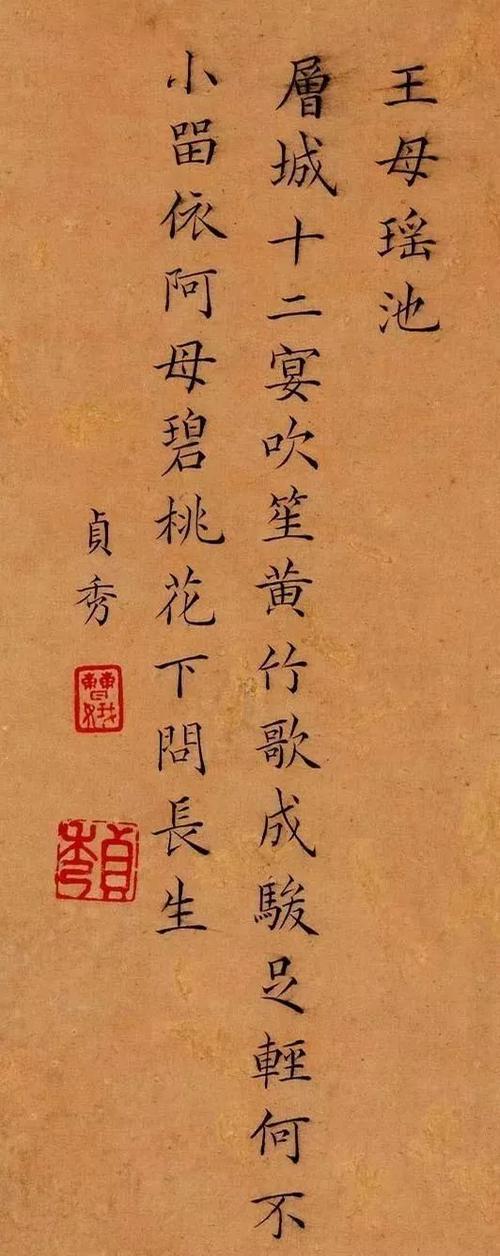 王母瑶池
層城十二宴吹笙黄竹歌成駿足輕何不
小留依阿母碧桃花下問長生
貞秀
曹娥
貞秀